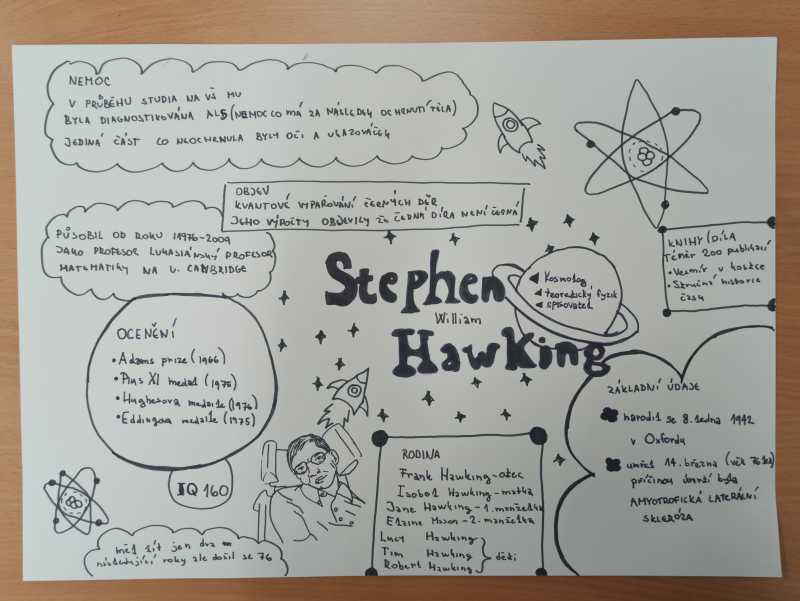 NEMOC
V PRŮBĚHU STUDIA NA VŠ MU
BYLA DIAGNOSTIKOVÁNA ALS (NEMOC CO MÁ ZA NÁSLEDEK OCHRNUTÍ TĚLA)
JEDINÁ ČÁST CO NEOCHRNULA BYLY OČI A UKAZOVÁČEK
OBJEV
KVANTOVÉ VYPAŘOVÁNÍ ČERNÝCH DĚR
JEHO VÝPOČTY OBJEVILY ŽE ČERNÁ DÍRA NENÍ ČERNÁ
PŮSOBIL OD ROKU 1976-2009
JAKO PROFESOR LUKASIÁNSKÝ PROFESOR
MATEMATIKY NA U. CAMBRIDGE
KNIHY/DÍLA
Téměř 200 publikací
• Vesmír v kostce
• Stručná historie
času
Stephen
William
Hawking
Kosmolog
teoretický fyzik
spisovatel
OCENĚNÍ
• Adams prize (1966)
• Pius XI medal (1975)
• Hughesova medaile (1976)
• Eddingova medaile (1975)
IQ 160
ZÁKLADNÍ ÚDAJE
narodil se 8. ledna 1942
v Oxfordu
umřel 14. března (věk 76 let)
příčinou úmrtí byla
AMYOTROFICKÁ LATERÁLNÍ
SKLERÓZA
RODINA
Frank Hawking - otec
Isobel Hawking - matka
Jane Hawking - 1. manželka
Elaine Mason - 2. manželka
Lucy Hawking
Tim Hawking
děti
Robert Hawking
měl žít jen dva
následující roky ale dožil se 76